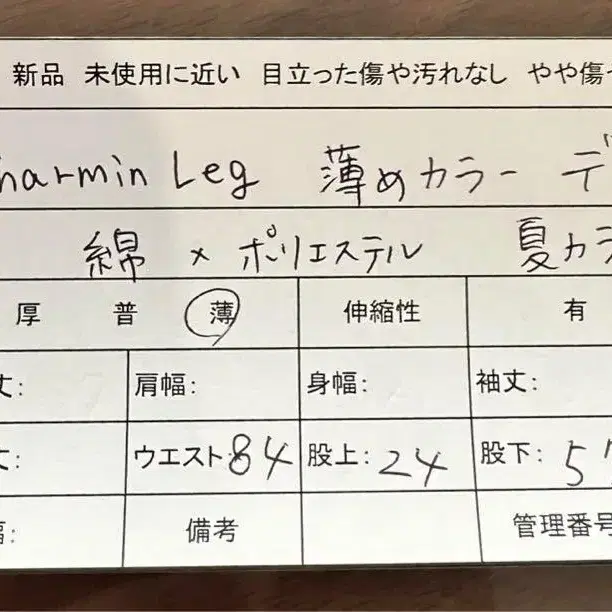 新品 未使用に近い 目立った傷や汚れなし やや傷
harmin Leg 薄めカラー デ
綿 × ポリエステル 夏カラ
厚 普 薄 伸縮性 有
丈: 肩幅: 身幅: 袖丈:
丈: ウエスト:84 股上: 24 股下: 5
幅: 備考 管理番号